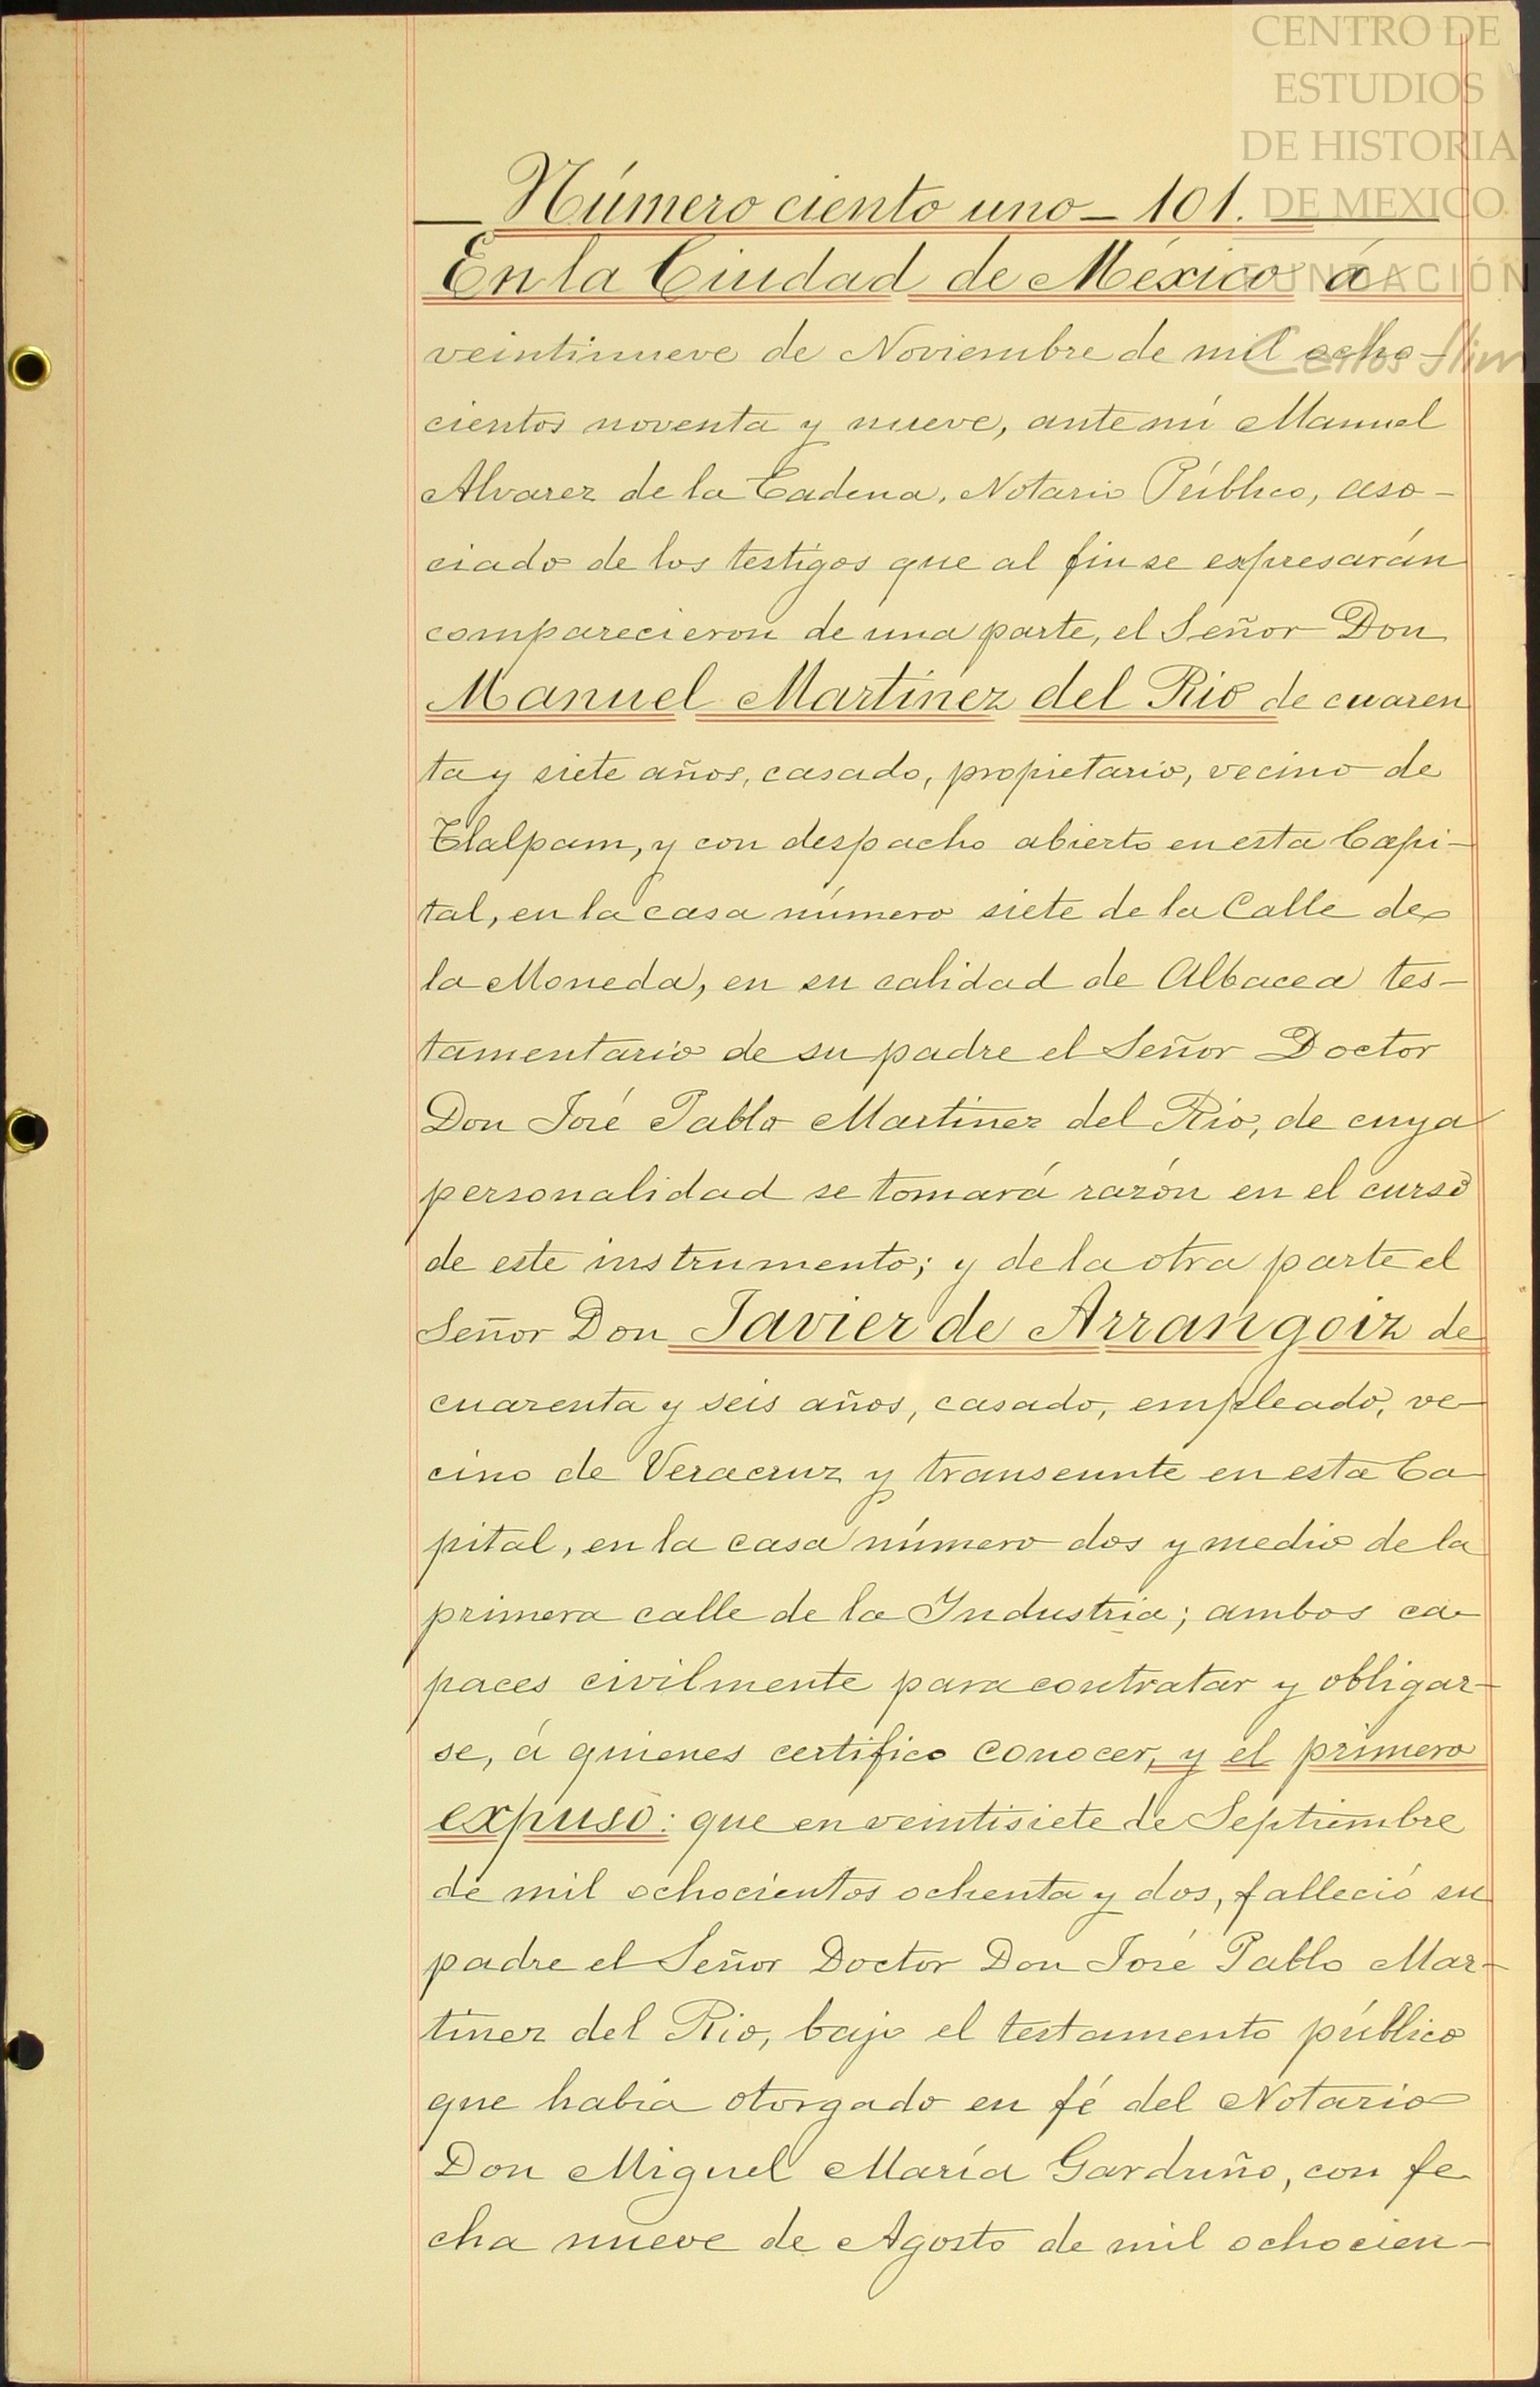 CENTRO DE
ESTUDIOS
DE HISTORIA
DE MEXICO
FUNDACIÓN
Carlos Slim
Número ciento uno — 101.
En la Ciudad de México á
veintinueve de Noviembre de mil ocho-
cientos noventa y nueve, ante mí Manuel
Alvarez de la Cadena, Notario Público, aso-
ciado de los testigos que al fin se expresarán
comparecieron de una parte, el Señor Don
Manuel Martínez del Rio de cuaren
ta y siete años, casado, propietario, vecino de
Tlalpam, y con despacho abierto en esta Capi-
tal, en la casa número siete de la Calle de
la Moneda, en su calidad de Albacea tes-
tamentario de su padre el Señor Doctor
Don José Pablo Martinez del Rio, de cuya
personalidad se tomará razón en el curso
de este instrumento; y de la otra parte el
Señor Don Javier de Arrangoiz de
cuarenta y seis años, casado, empleado, ve-
cino de Veracruz y transeunte en esta Ca-
pital, en la casa número dos y medio de la
primera calle de la Industria; ambos ca-
paces civilmente para contratar y obligar-
se, á quienes certifico conocer, y el primero
expuso: que en veintisiete de Septiembre
de mil ochocientos ochenta y dos, falleció su
padre el Señor Doctor Don José Pablo Mar-
tinez del Rio, bajo el testamento público
que habia otorgado en fé del Notario
Don Miguel María Garduño, con fe-
cha nueve de Agosto de mil ochocien-